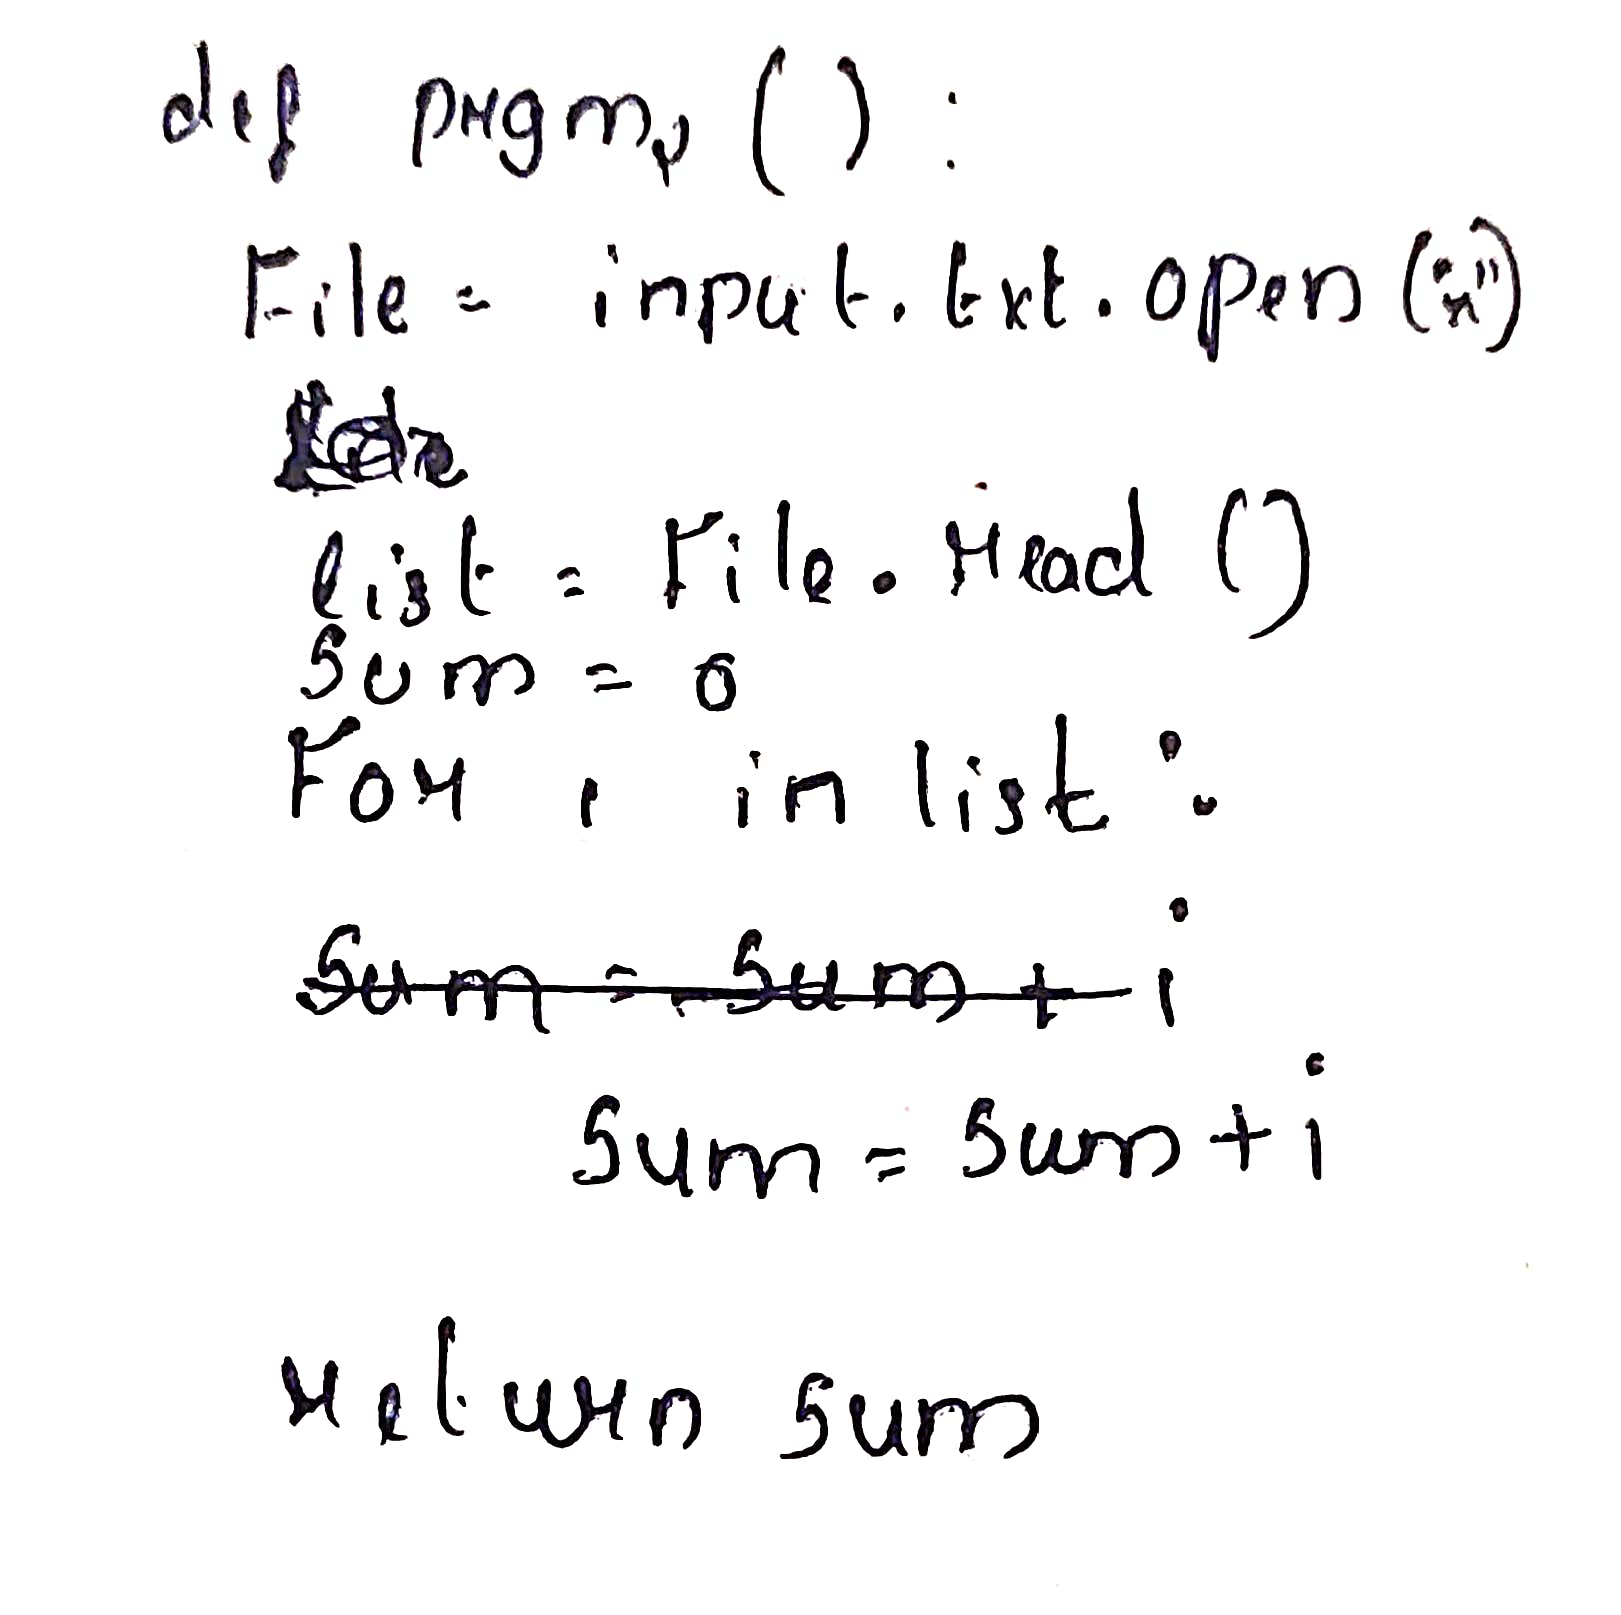 def prgmp ():
File = input.txt.open ("r")
list = File.read ()
Sum = 0
For i in list :
Sum = Sum + i
Sum = Sum + i
return sum